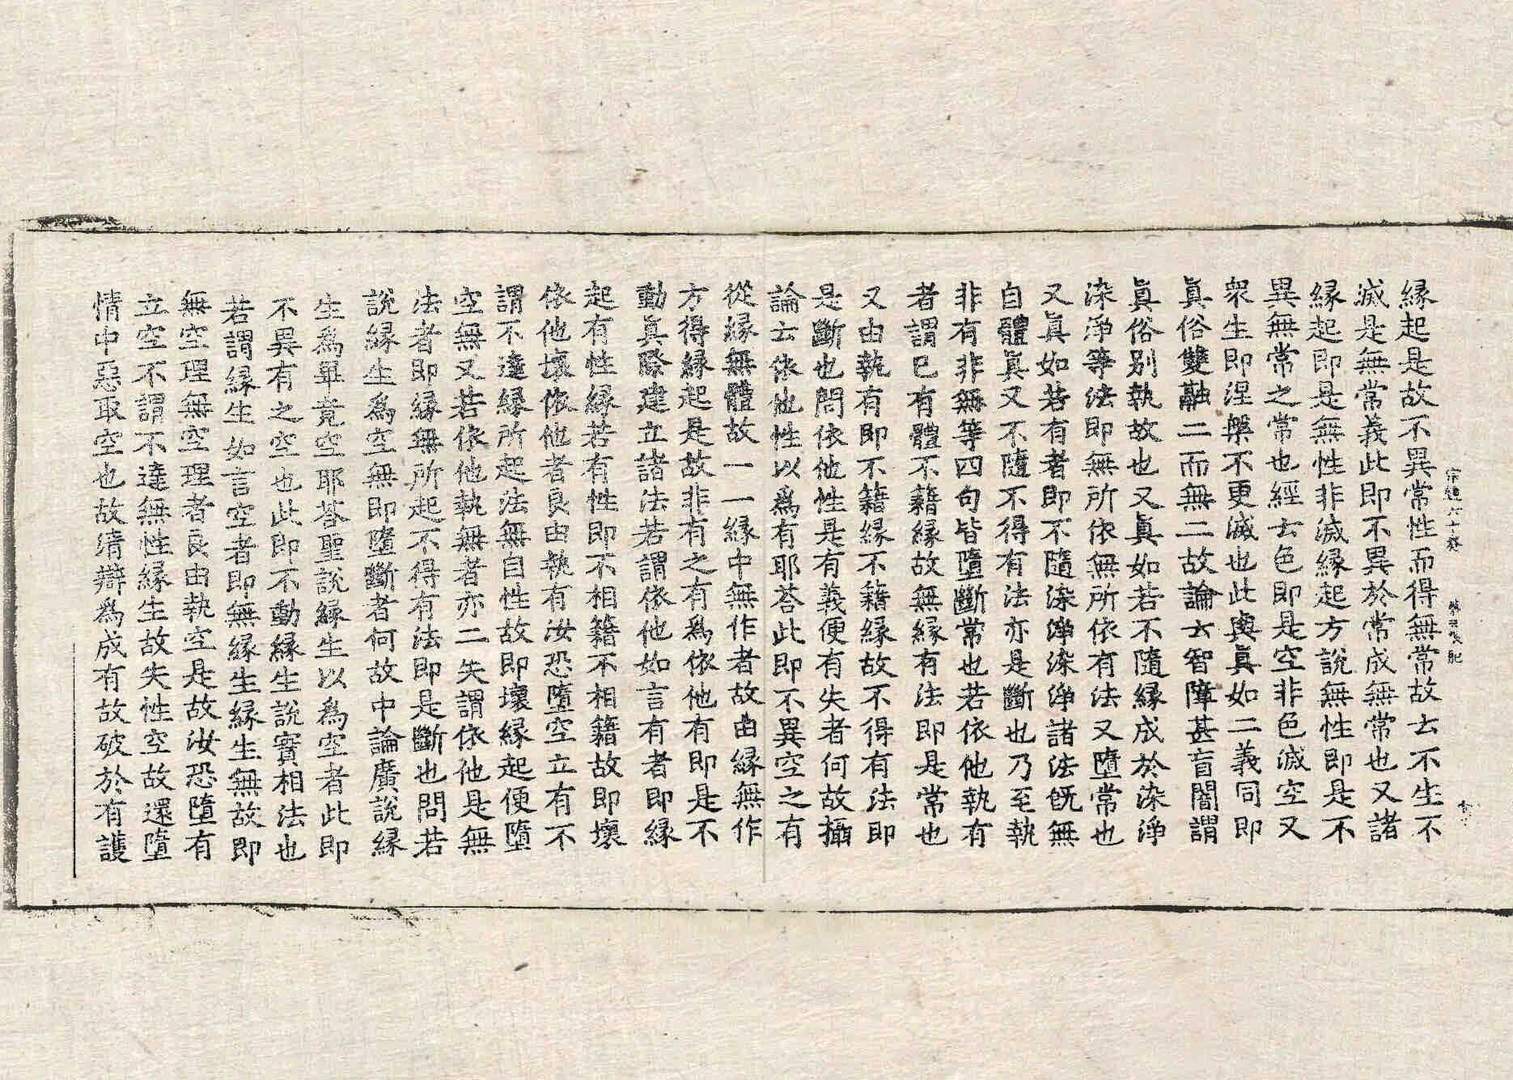 緣起是故不異常性而得無常故云不生不
滅是無常義此即不異於常成無常也又諸
緣起即是無性非滅緣起方說無性即是不
異無常之常也經云色即是空非色滅空又
衆生即涅槃不更滅也此與真如二義同即
真俗雙融二而無二故論云智障甚盲闇謂
真俗別執故也又真如若不隨緣成於染淨
染淨等法即無所依無所依有法又墮常也
又真如若有者即不隨染淨染淨諸法旣無
自體真又不隨不得有法亦是斷也乃至執
非有非無等四句皆墮斷常也若依他執有
者謂已有體不籍緣故無緣有法即是常也
又由執有即不籍緣不籍緣故不得有法即
是斷也問依他性是有義便有失者何故攝
論云依他性以為有耶荅此即不異空之有
從緣無體故一一緣中無作者故由緣無作
方得緣起是故非有之有為依他有即是不
動真際建立諸法若謂依他如言有者即緣
起有性緣若有性即不相籍不相籍故即壞
依他壞依他者良由執有汝恐墮空立有不
謂不達緣所起法無自性故即壞緣起便墮
空無又若依他執無者亦二失謂依他是無
法者即緣無所起不得有法即是斷也問若
說緣生為空無即墮斷者何故中論廣說緣
生為畢竟空耶荅聖說緣生以為空者此即
不異有之空也此即不動緣生說實相法也
若謂緣生如言空者即無緣生緣生無故即
無空理無空理者良由執空是故汝恐墮有
立空不謂不達無性緣生故失性空故還墮
情中惡取空也故清辯為成有故破於有護